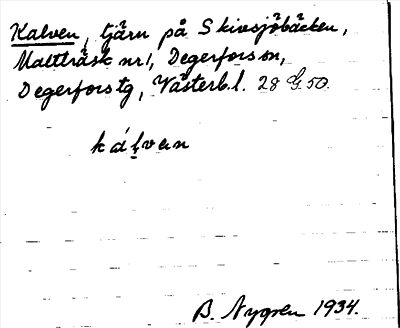 Kalven, tjärn på Skivsjöbäcken,
Maltträsk nr 1, Degerfors sn,
Degerfors tg, Västerb. l. 28 G 50.
kálvan
B. Nygren 1934.